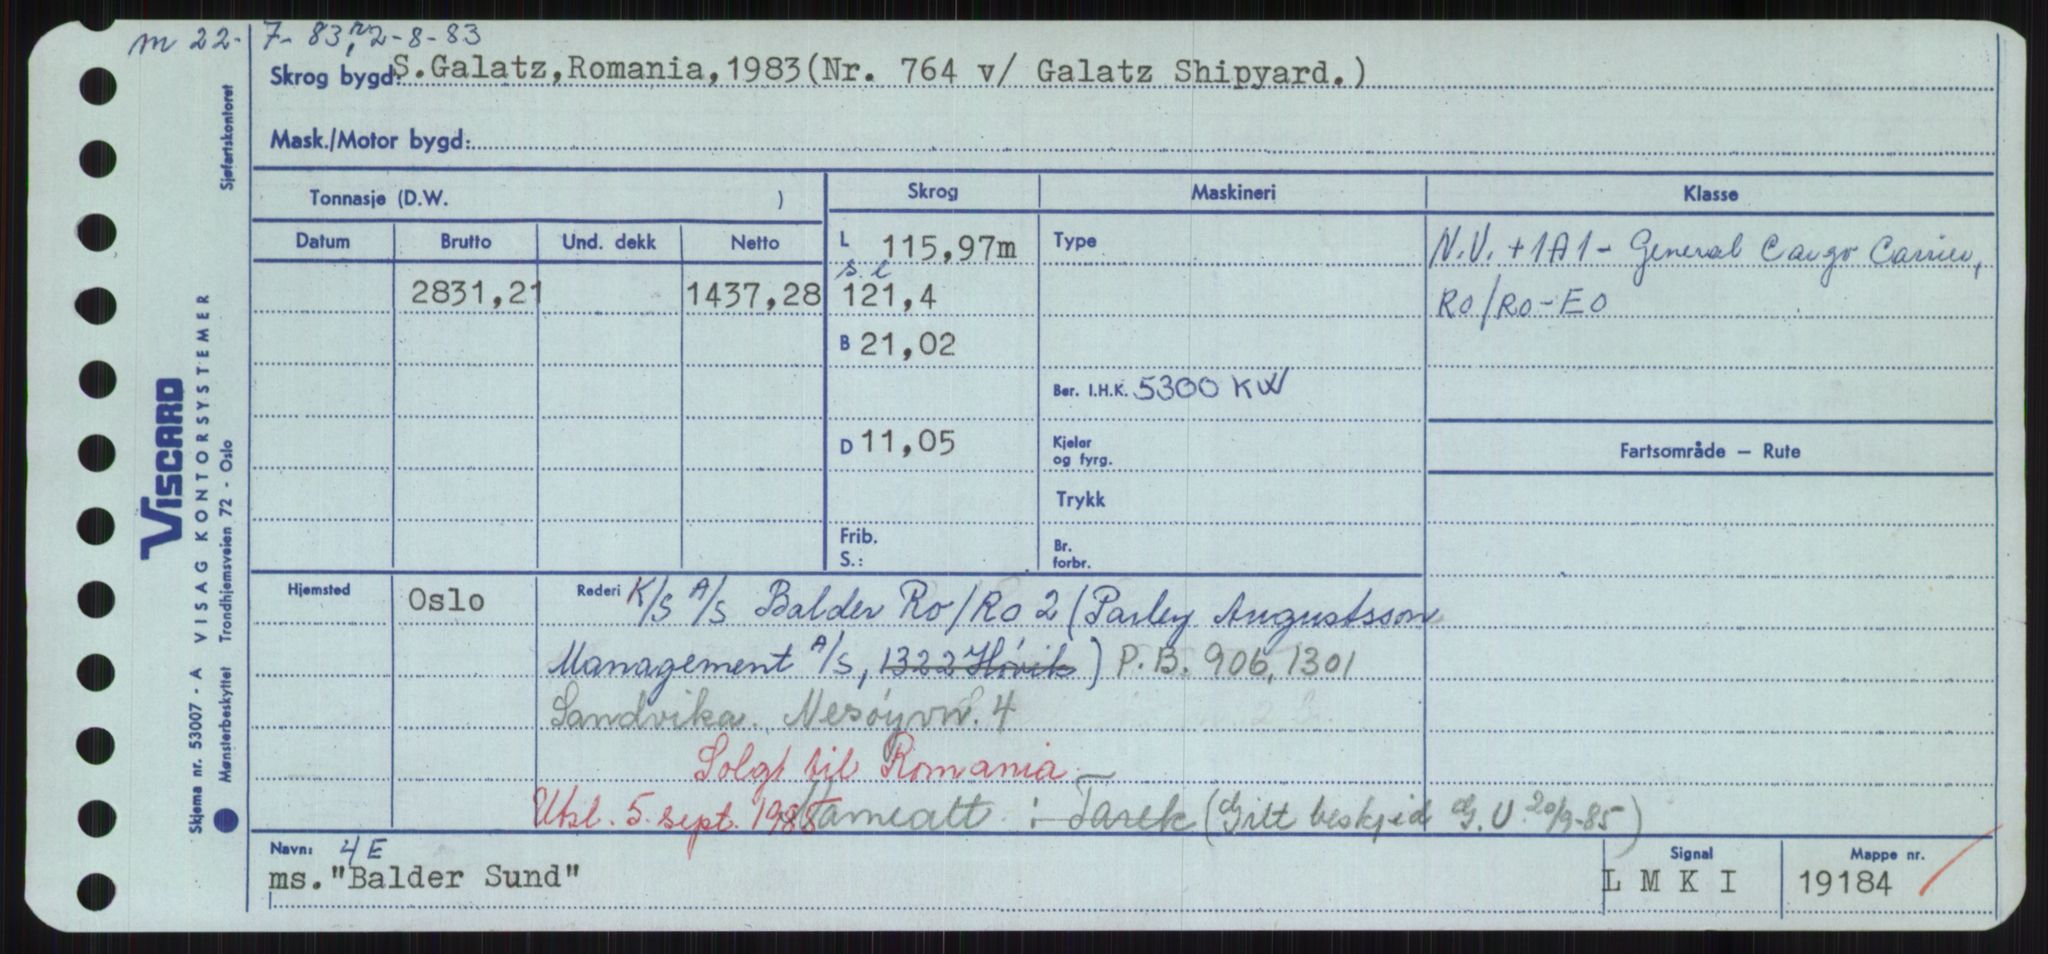 m 22-7-83, r2-8-83
Skrog bygd: S.Galatz, Romania, 1983(Nr. 764 v/ Galatz Shipyard.)
Mask./Motor bygd:
Tonnasje (D.W. )
Skrog Maskineri Klasse
Datum Brutto Und. dekk Netto
L 115,97m Type N.V. +1A1 - General Cargo Carrier,
s l
2831,21 1437,28 121,4 RO/RO-EO
B 21,02
Ber. I.H.K. 5300 KW
D 11,05 Kjeler og fyrg. Fartsområde — Rute
Trykk
Frib. S.: Br. forbr.
Hjemsted Oslo Rederi K/S A/S Balder Ro/Ro 2 (Parley Augustsson
Management A/S, 1322 Høvik) P.B. 906, 1301
Sandvika. Nesøyvn. 4
Solgt til Romania
Utsl. 5. sept. 1985 Navneatt : Tarek (Gitt beskjed G.U 20/9-85)
Navn: 4E
ms. "Balder Sund"
Signal L M K I
Mappe nr. 19184
Skjema nr. 53007 - A VISAG KONTORSYSTEMER Sjøfartskontoret
Mønsterbeskyttet Trondhjemsveien 72 - Oslo
VISCARD